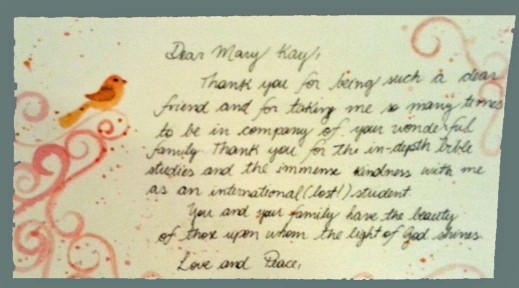 Dear Mary Kay,
Thank you for being such a dear
friend and for taking me so many times
to be in company of your wonderful
family. Thank you for the in-depth bible
studies and the immense kindness with me
as an international (lost!) student.
You and your family have the beauty
of those upon whom the light of God shines.
Love and Peace,